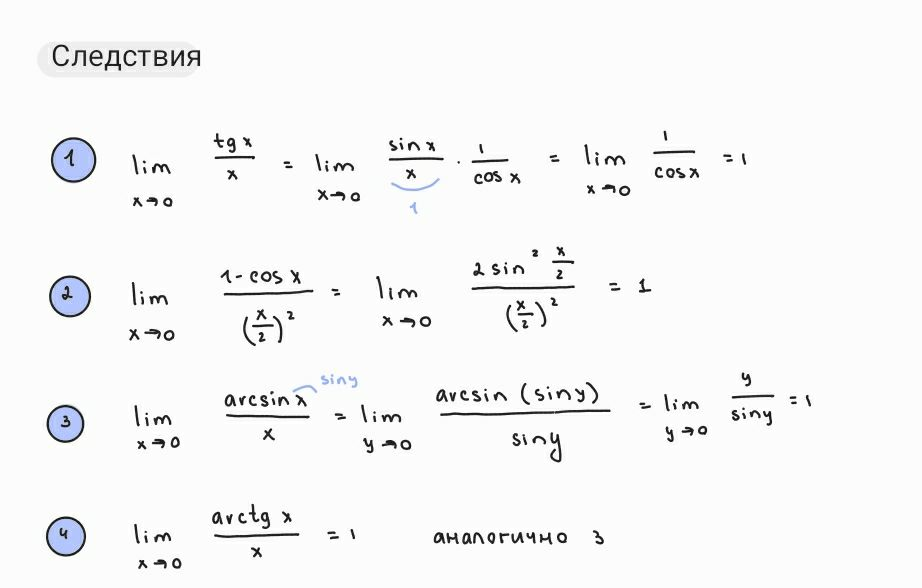 Следствия
1 lim x→0 tg x / x = lim x→0 sin x / x · 1 / cos x = lim x→0 1 / cos x = 1
1
2 lim x→0 1 - cos x / (x/2)² = lim x→0 2 sin² x/2 / (x/2)² = 1
siny
3 lim x→0 arcsin x / x = lim y→0 arcsin (siny) / siny = lim y→0 y / siny = 1
4 lim x→0 arctg x / x = 1 аналогично 3